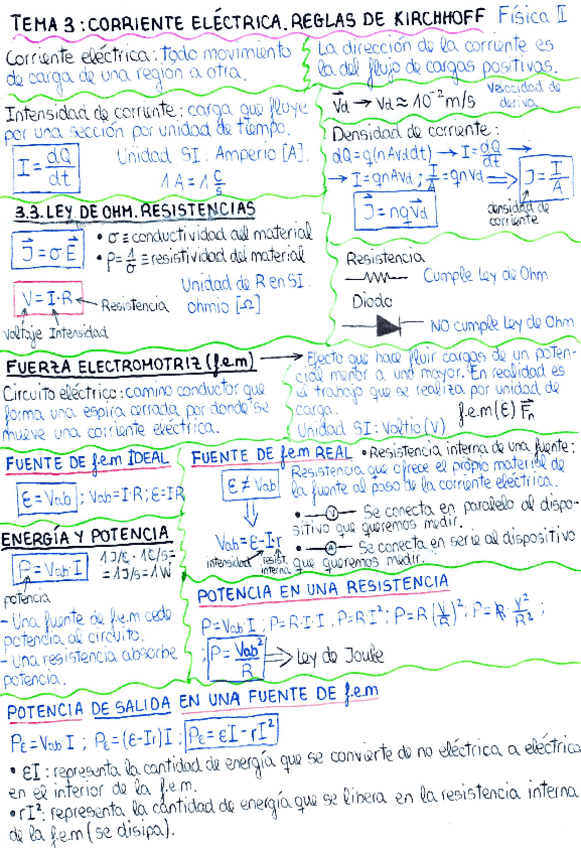 TEMA 3: CORRIENTE ELÉCTRICA. REGLAS DE KIRCHHOFF Física II
Corriente eléctrica: todo movimiento
de carga de una región a otra.
La dirección de la corriente es
la del flujo de cargas positivas.
Intensidad de corriente: carga que fluye
por una sección por unidad de tiempo.
I = dQ/dt
Unidad SI: Amperio [A].
1A = 1 C/s
V⃗d → Vd ≈ 10⁻² m/s Velocidad de
deriva
Densidad de corriente:
dQ = q(nAvddt) → I = dQ/dt →
→ I = qnAvd ; I/A = qnVd ⟹ J = I/A
J⃗ = nqV⃗d
densidad de
corriente
3.3. LEY DE OHM. RESISTENCIAS
J⃗ = σE⃗
• σ ≡ conductividad del material
• ρ = 1/σ ≡ resistividad del material
V = I·R
Resistencia
Voltaje Intensidad
Unidad de R en SI:
ohmio [Ω]
Resistencia
Cumple Ley de Ohm
Diodo
NO cumple Ley de Ohm
FUERZA ELECTROMOTRIZ (f.e.m) → Efecto que hace fluir cargas de un poten-
cial menor a uno mayor. En realidad es
el trabajo que se realiza por unidad de
carga.
f.e.m (ε) F⃗n
Unidad SI: Voltio (V)
Circuito eléctrico: camino conductor que
forma una espira cerrada por donde se
mueve una corriente eléctrica.
FUENTE DE f.e.m IDEAL
ε = Vab ; Vab = I·R ; ε = IR
FUENTE DE f.e.m REAL
ε ≠ Vab
Vab = ε - I·r
intensidad resist.
interna
• Resistencia interna de una fuente:
Resistencia que ofrece el propio material de
la fuente al paso de la corriente eléctrica.
• V Se conecta en paralelo al dispo-
sitivo que queremos medir.
• A Se conecta en serie al dispositivo
que queremos medir.
ENERGÍA Y POTENCIA
P = Vab I
1J/C · 1C/s =
= 1J/s = 1W
potencia
- Una fuente de f.e.m cede
potencia al circuito.
- Una resistencia absorbe
potencia.
POTENCIA EN UNA RESISTENCIA
P = Vab I ; P = R·I·I ; P = R I² ; P = R (V/R)² ; P = R · V²/R² ;
; P = Vab²/R ⟹ Ley de Joule
POTENCIA DE SALIDA EN UNA FUENTE DE f.e.m
Pε = Vab I ; Pε = (ε - Ir) I ; Pε = εI - rI²
• εI: representa la cantidad de energía que se convierte de no eléctrica a eléctrica
en el interior de la f.e.m.
• rI²: representa la cantidad de energía que se libera en la resistencia interna
de la f.e.m (se disipa).